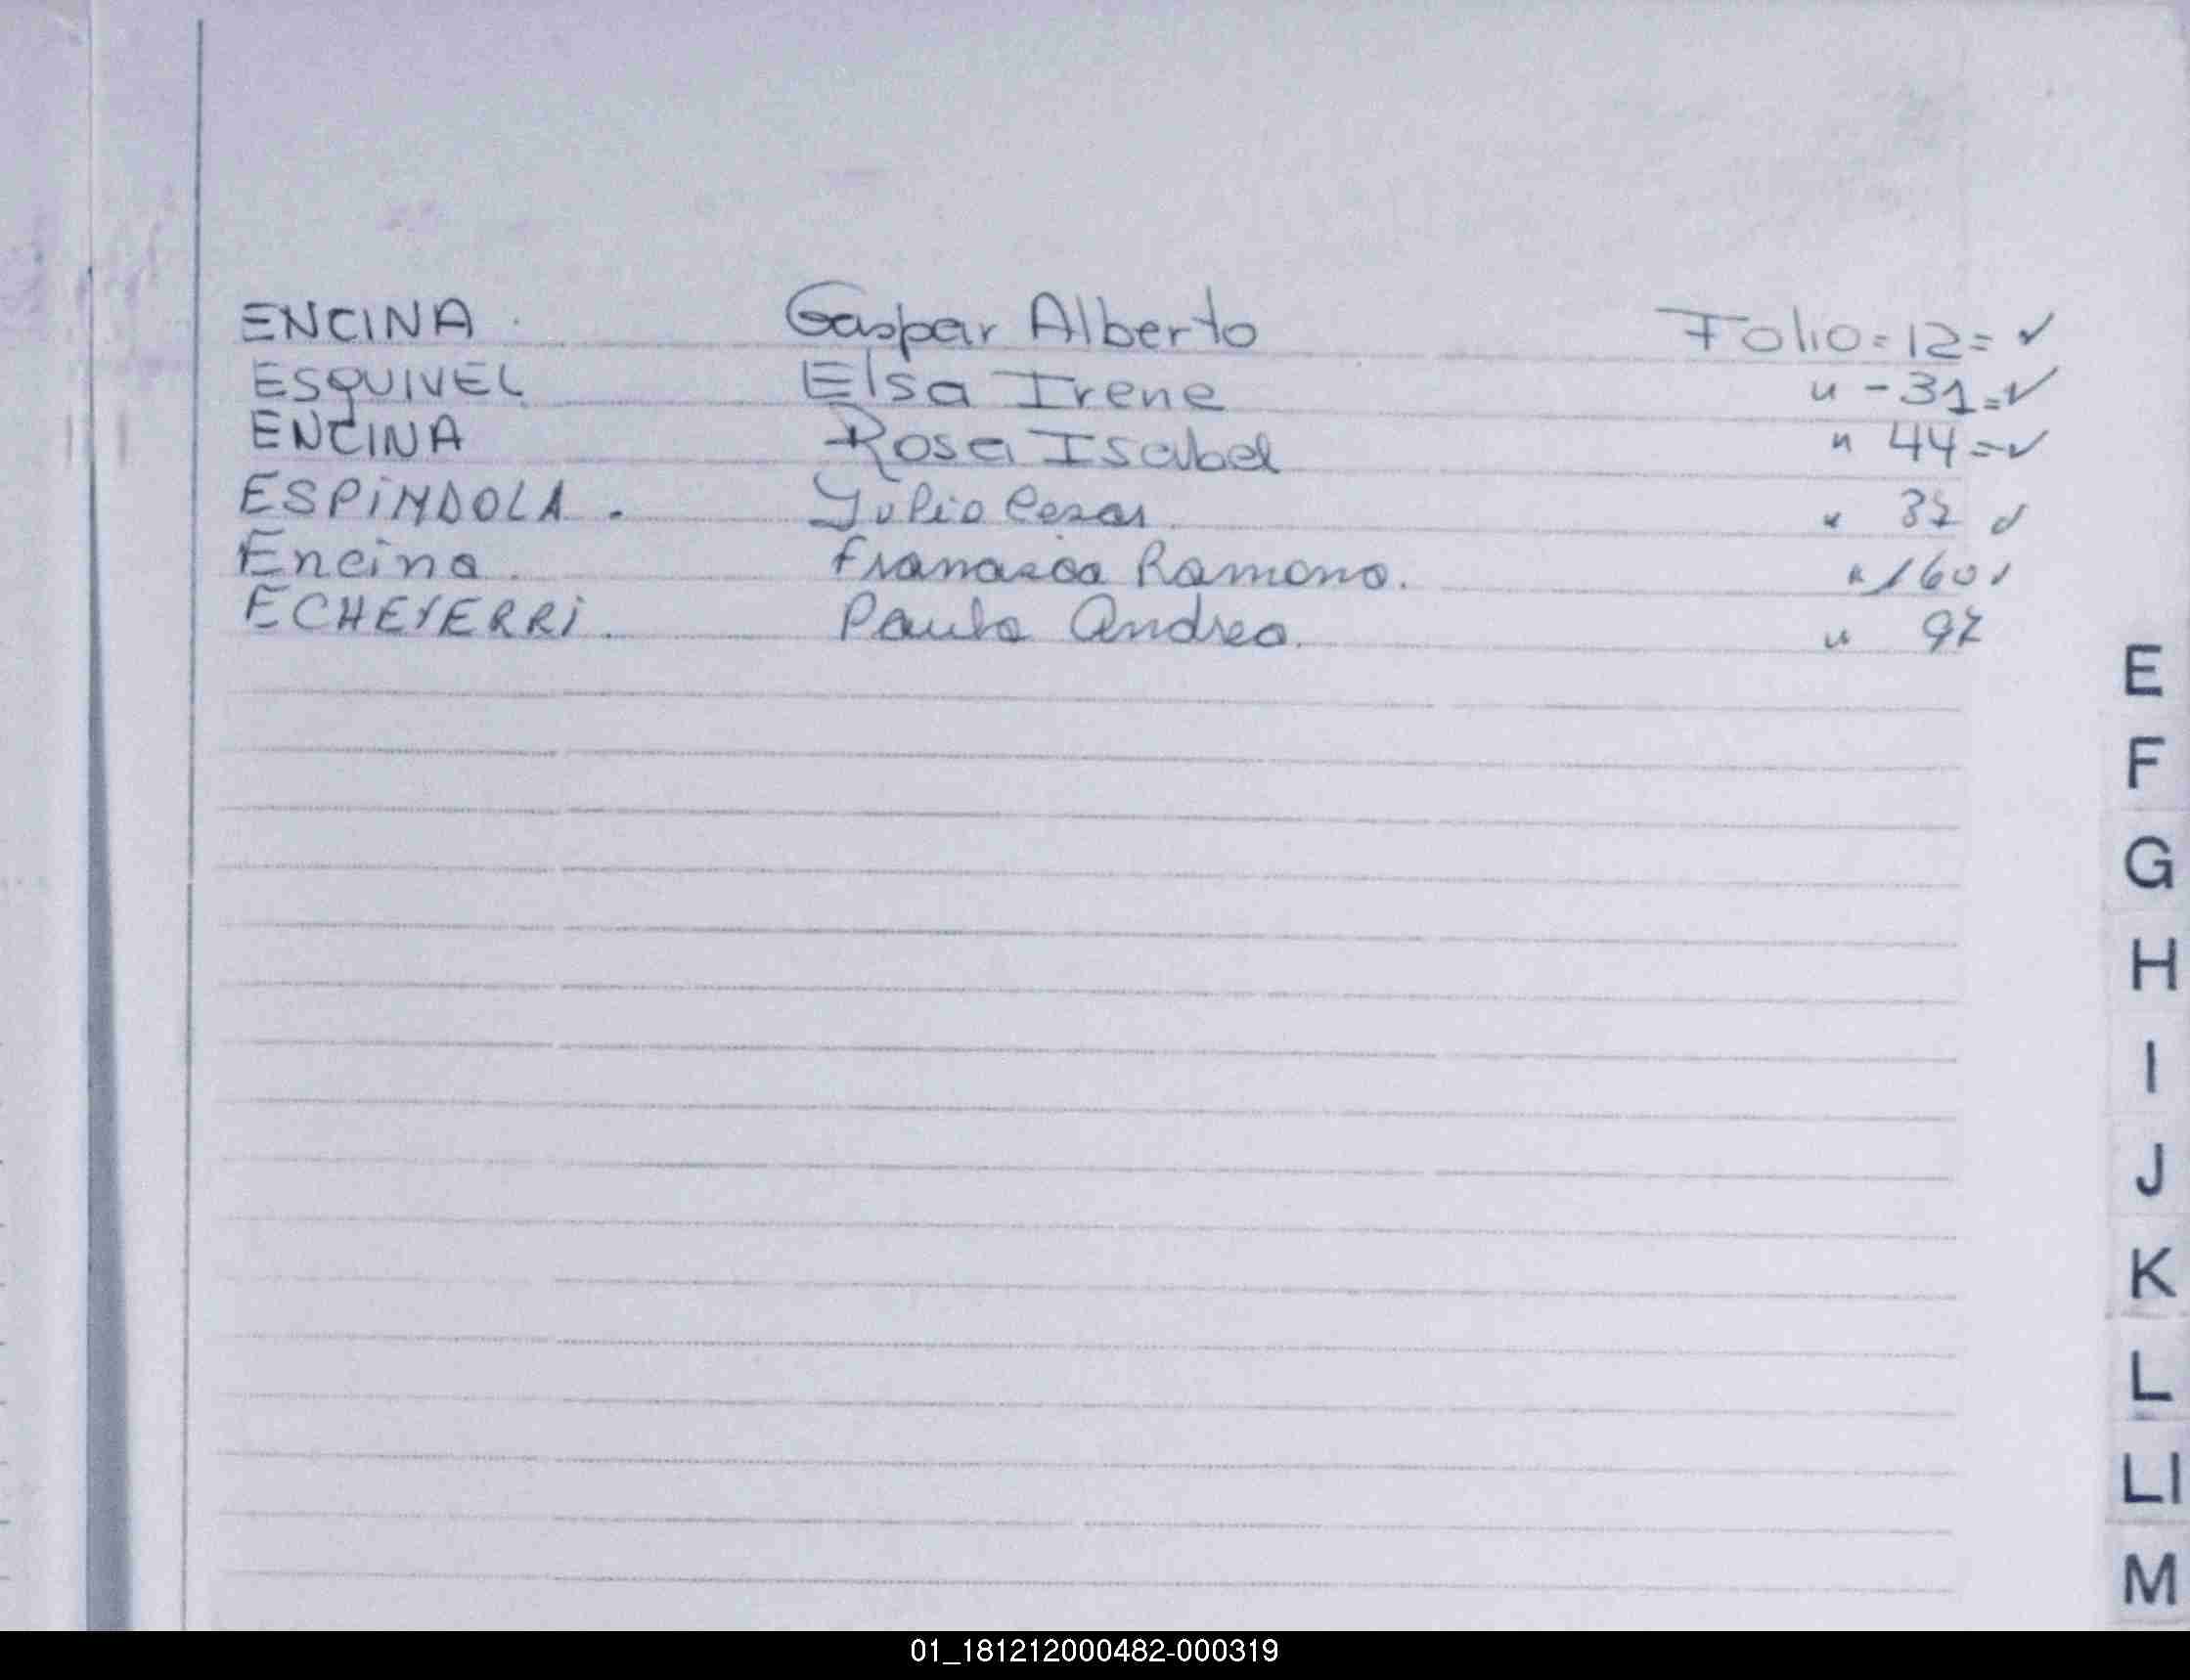 ENCINA . Gaspar Alberto Folio = 12 = ✓
ESQUIVEL Elsa Irene " - 31 = ✓
ENCINA Rosa Isabel " 44 = ✓
ESPiNDOLA . Julio Cesar " 37 ✓
Encina Francisca Ramona. " 160 ✓
ECHEVERRi. Paula Andrea. " 97
E
F
G
H
I
J
K
L
Ll
M
01_181212000482-000319